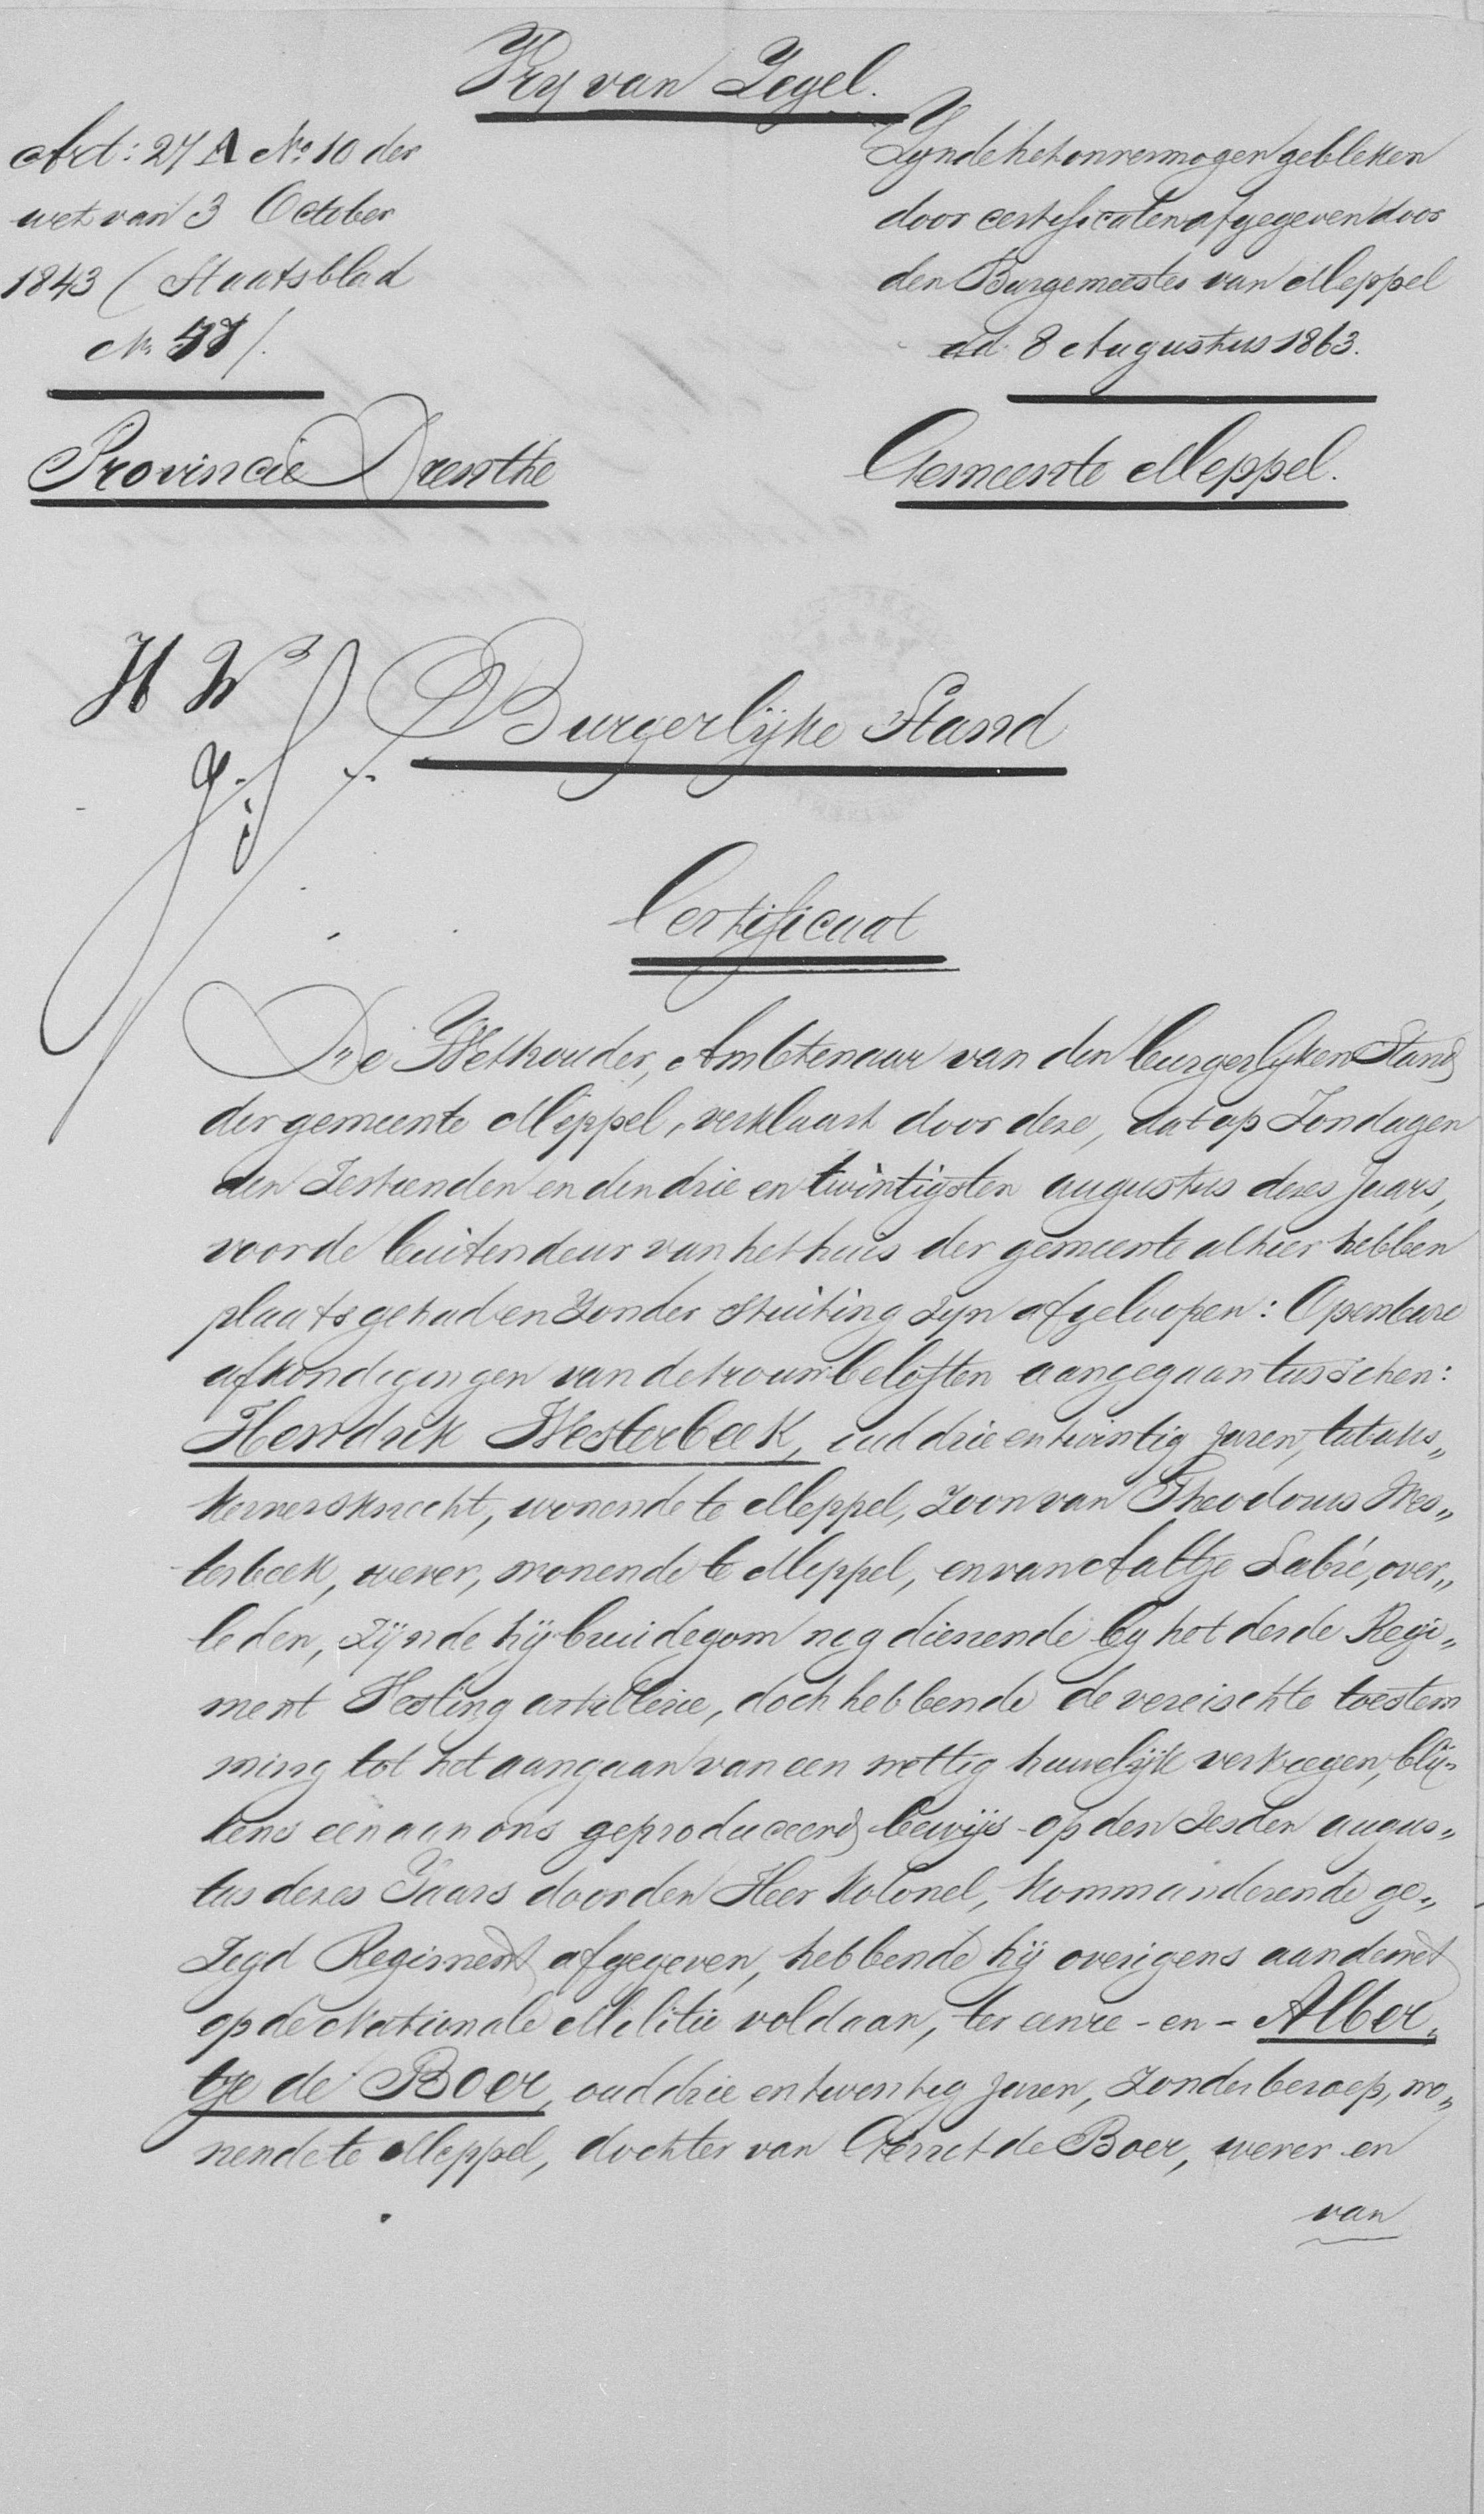 Vry van Zegel.
Art: 27 A No. 10 der
wet van 3 October
1843 (Staatsblad
No. 47).
Zynde het onvermogen gebleken
door certificaten afgegeven door
den Burgemeester van Meppel
dd. 8 Augustus 1863.
Provincie Drenthe
Gemeente Meppel.
H W
Burgerlijke Stand
Certificaat
De Wethouder, Ambtenaar van den burgerlyken Stand
der gemeente Meppel, verklaart door deze, dat op Zondagen
den Zestienden en den drie en twintigsten augustus dezes jaars,
voor de buitendeur van het huis der gemeente alhier hebben
plaats gehad en Zonder stuiting zyn afgeloopen: Openbare
afkondigingen van de trouwbeloften aangegaan tusschen:
Hendrik Westerbeek, oud drie en twintig jaren, tabaks„
kerversknecht, wonende te Meppel, Zoon van Theodorus Wes„
terbeek, wever, wonende te Meppel, en van Aaltje Labré, over„
leden, zijnde hij bruidegom nog dienende by het derde Regi„
ment Vesting artillerie, doch hebbende de vereischte toestem
ming tot het aangaan van een wettig huwelijk verkregen, blij„
kens een aan ons geproduceerd bewijs op den Zesden augus„
tus dezes Jaars door den Heer Kolonel, Kommanderende ge„
Zegd Regiment afgegeven, hebbende hij overigens aan de wet
op de Nationale Militie voldaan, ter eenre - en - Alber„
tje de Boer, oud drie en twintig jaren, Zonder beroep, wo„
nende te Meppel, dochter van Gerrit de Boer, wever en
van